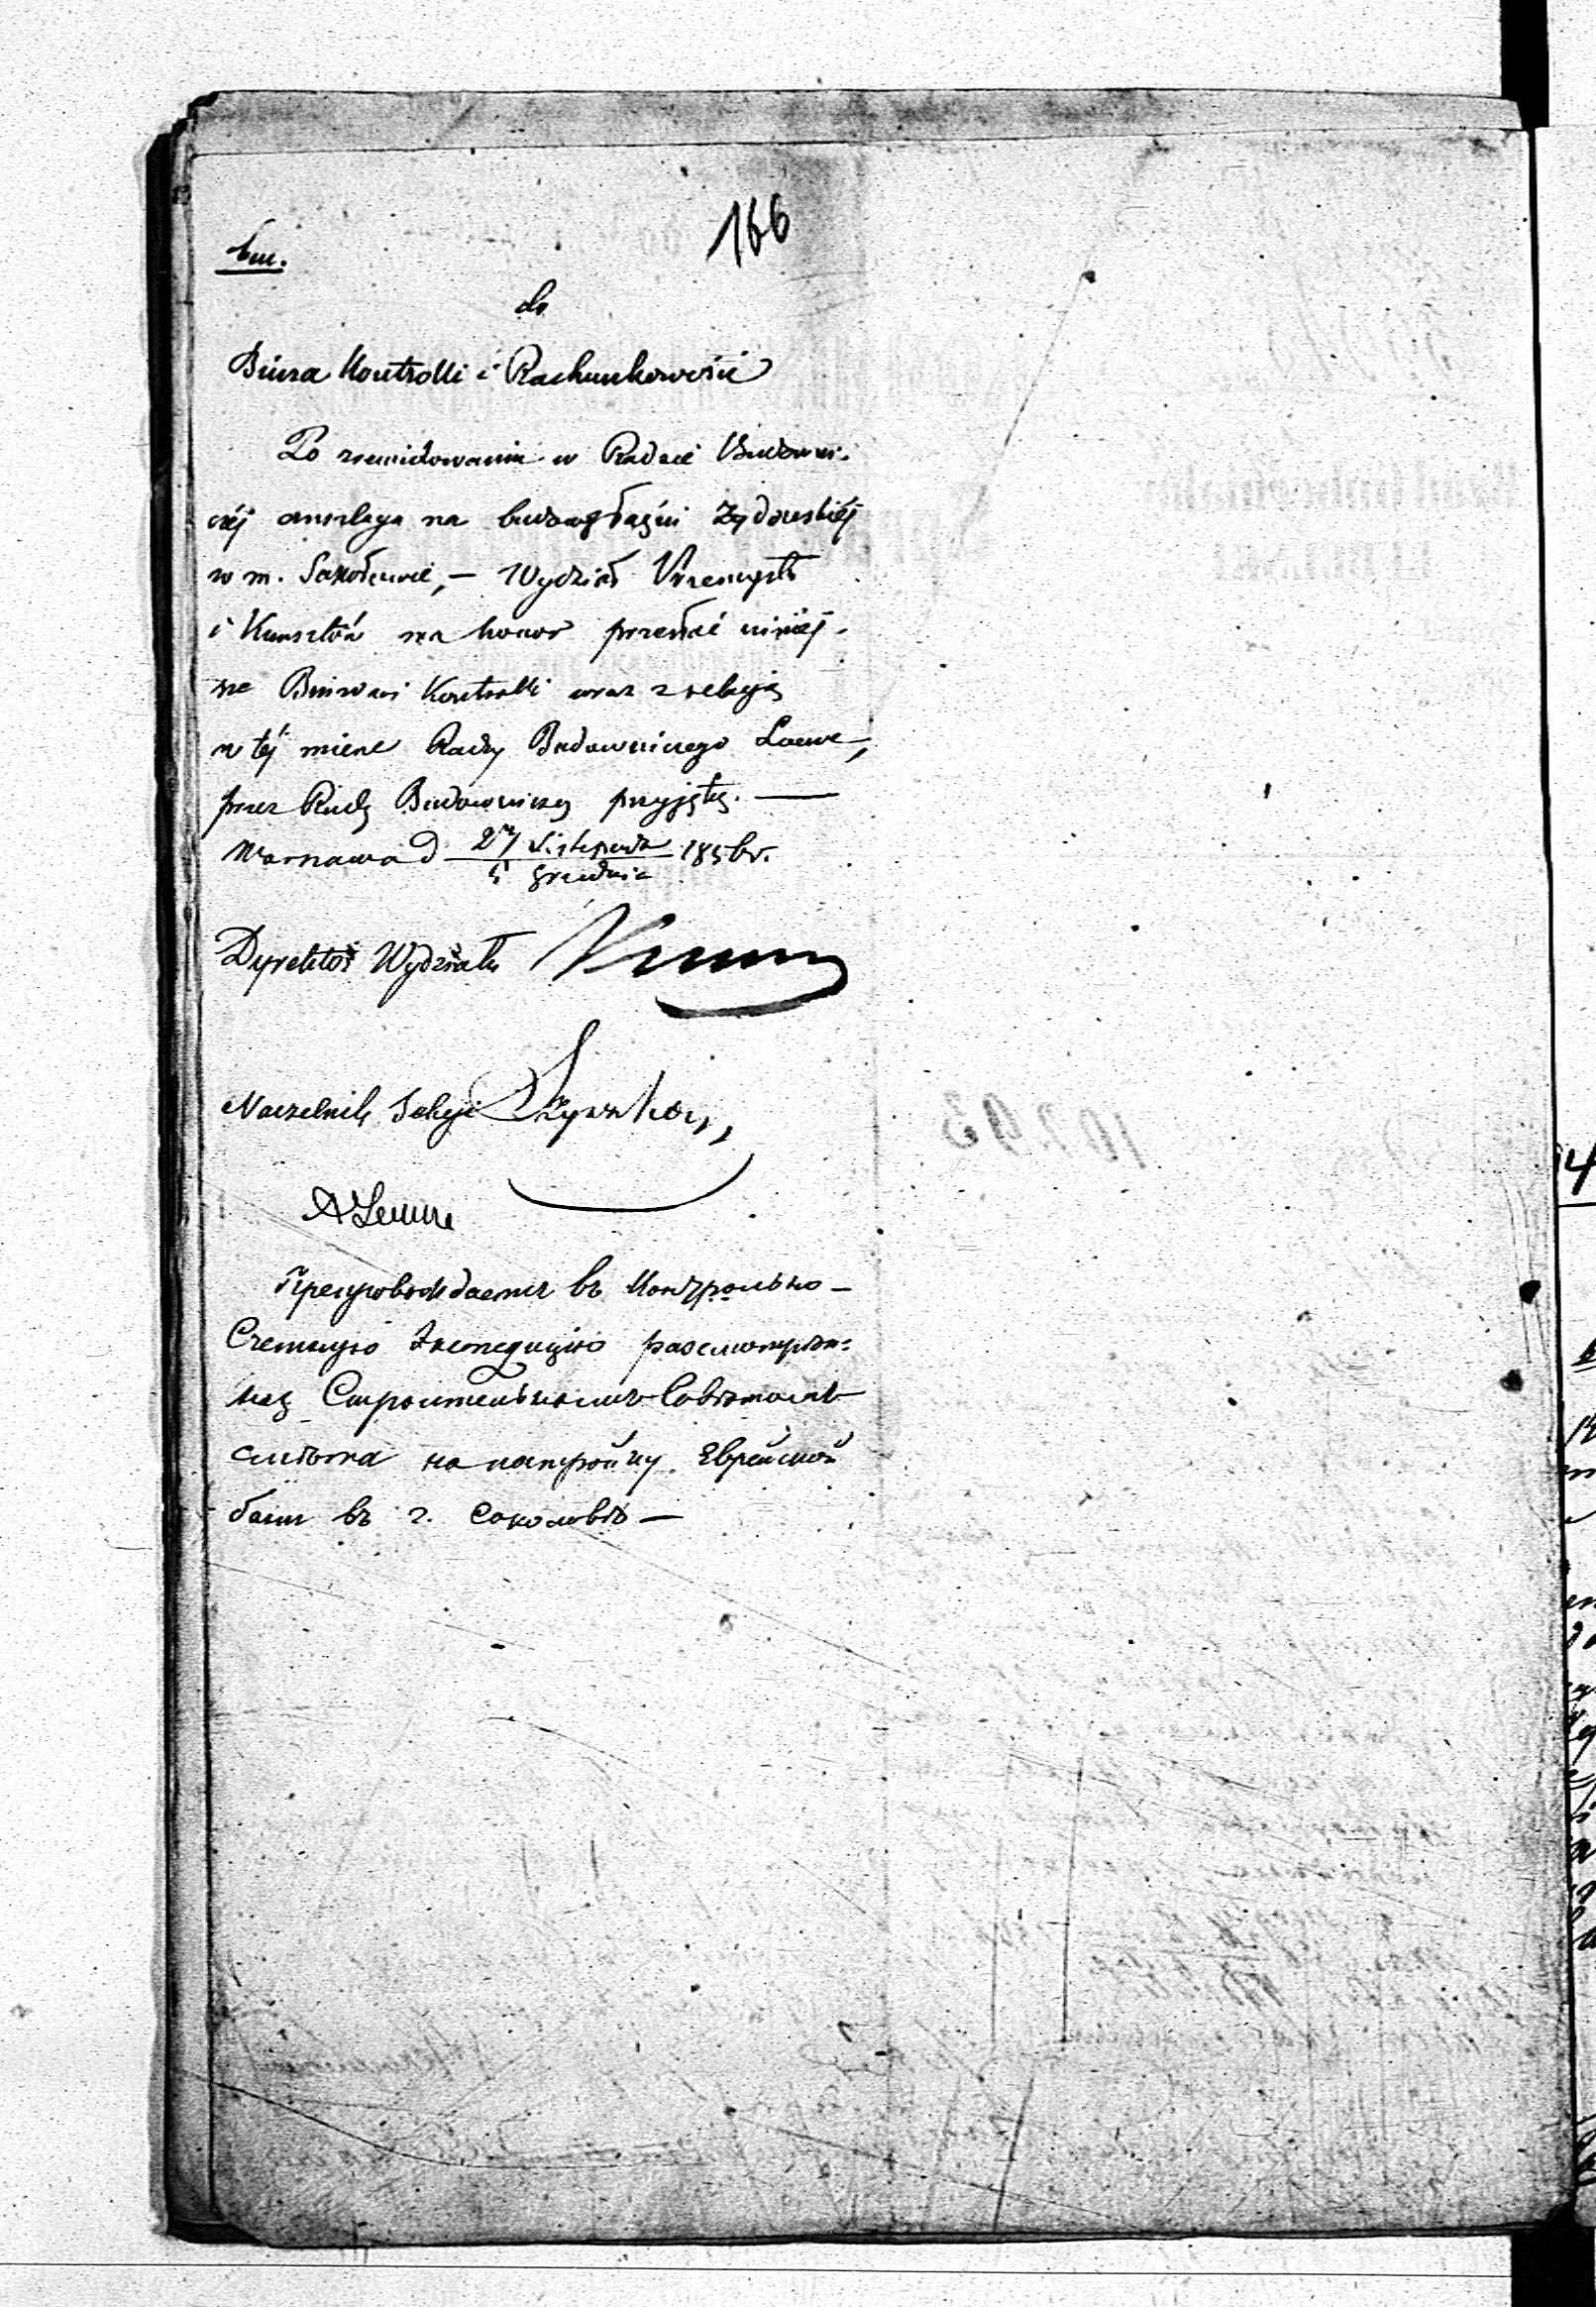 166
bm.
do
Biura Kontrolli i Rachunkowości
Po zrewidowaniu w Radzie Budowni-
czéj anszlagu na budowę łaźni Żydowskiéj
w m. Sokołowie, — Wydział Przemysłu
i Kunsztów ma honor przesłać niniéj-
sze Biurowi Kontrolli wraz z relacją
w téj mierze Radcy Budowniczego Loewe,
przez Radę Budowniczą przyjętą. —
Warszawa d. 2⁠3 Listopada 1856 r.
5 Grudnia
Dyrektor Wydziału
Naczelnik Sekcji
Препровождается въ Контрольно-
Счетную Экспедицію разсмотрѣн-
ная Строительнымъ Совѣтомъ
смѣта на постройку Еврейской
бани въ г. Соколовѣ —
10293